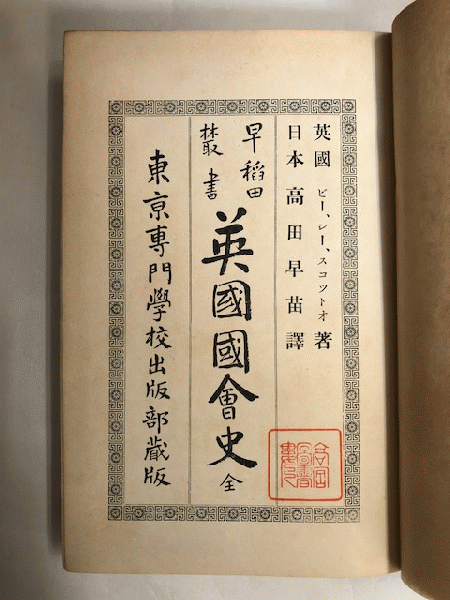 英國 ビー、レー、スコツトオ 著
日本 高田早苗譯
早稲田
叢書
英國國會史 全
東京專門學校出版部藏版